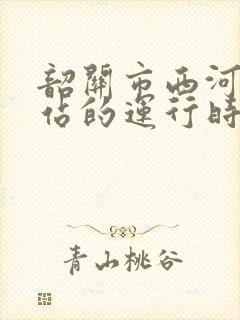 韶關市西河
佔的運行時
青山桃谷